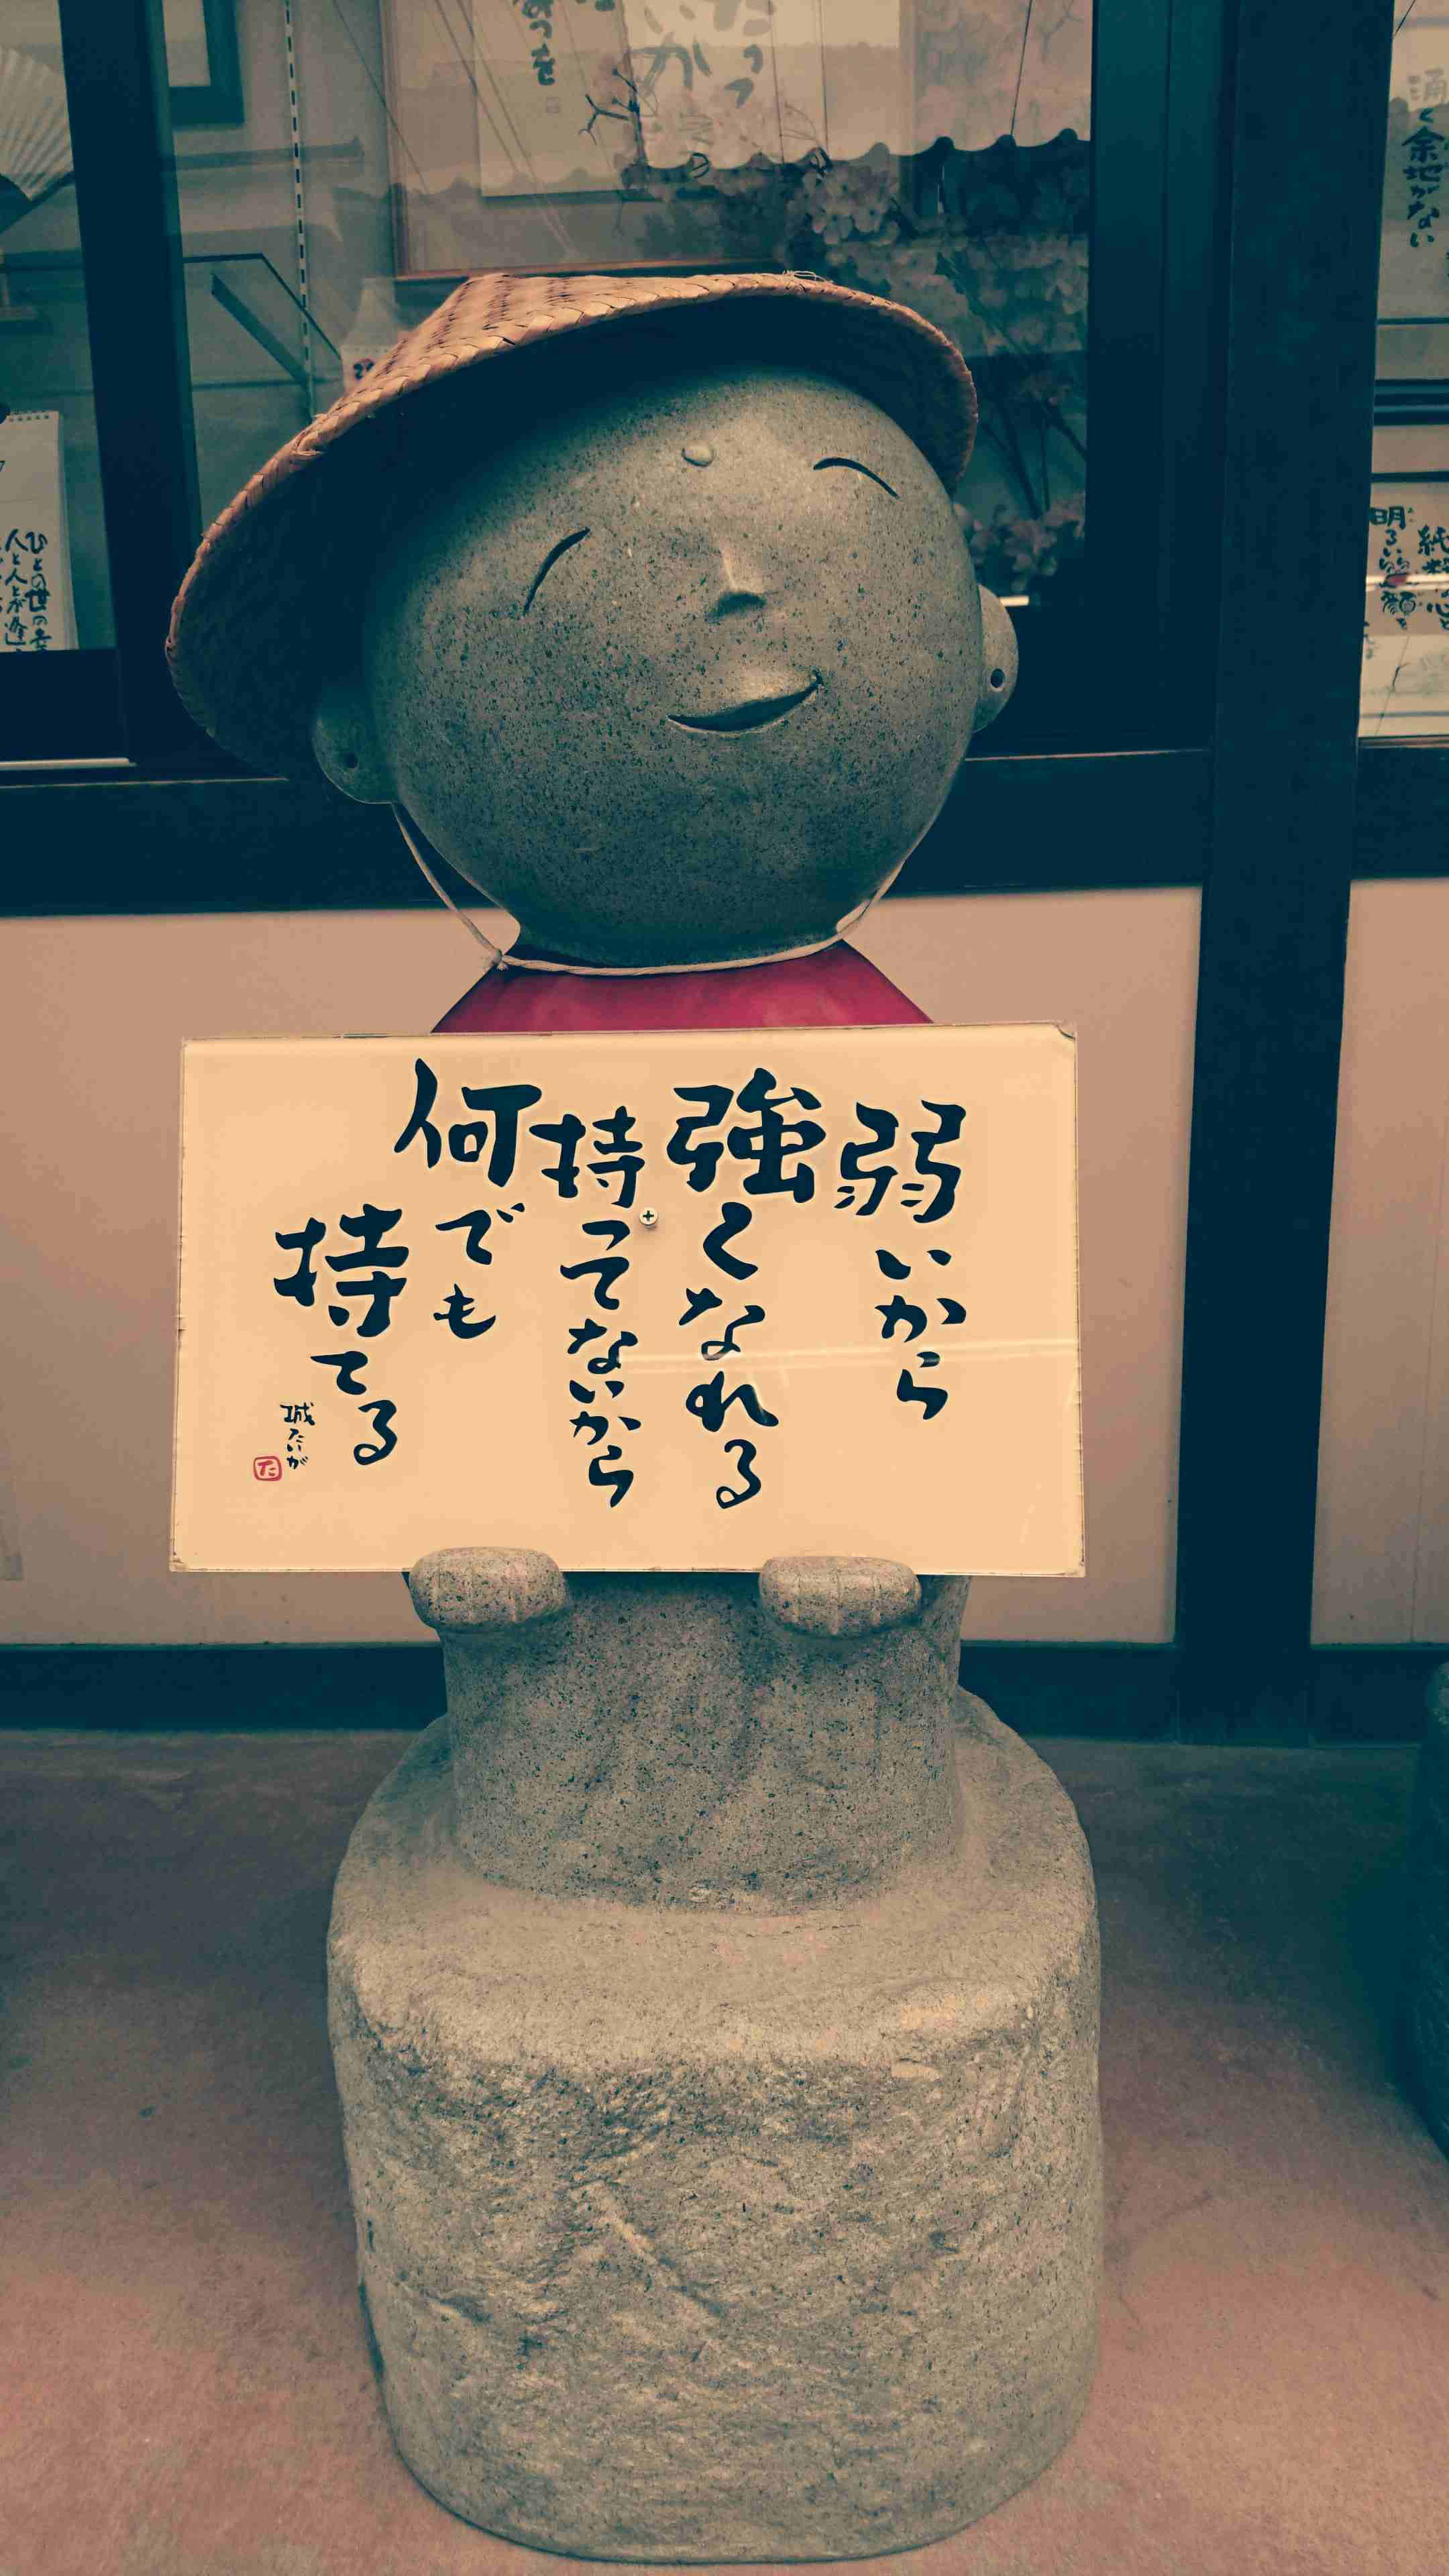 弱いから
強くなれる
持ってないから
何でも
持てる
城たいが
た
余地がない
明るい笑顔を
ひとの世の
人と人とが逢